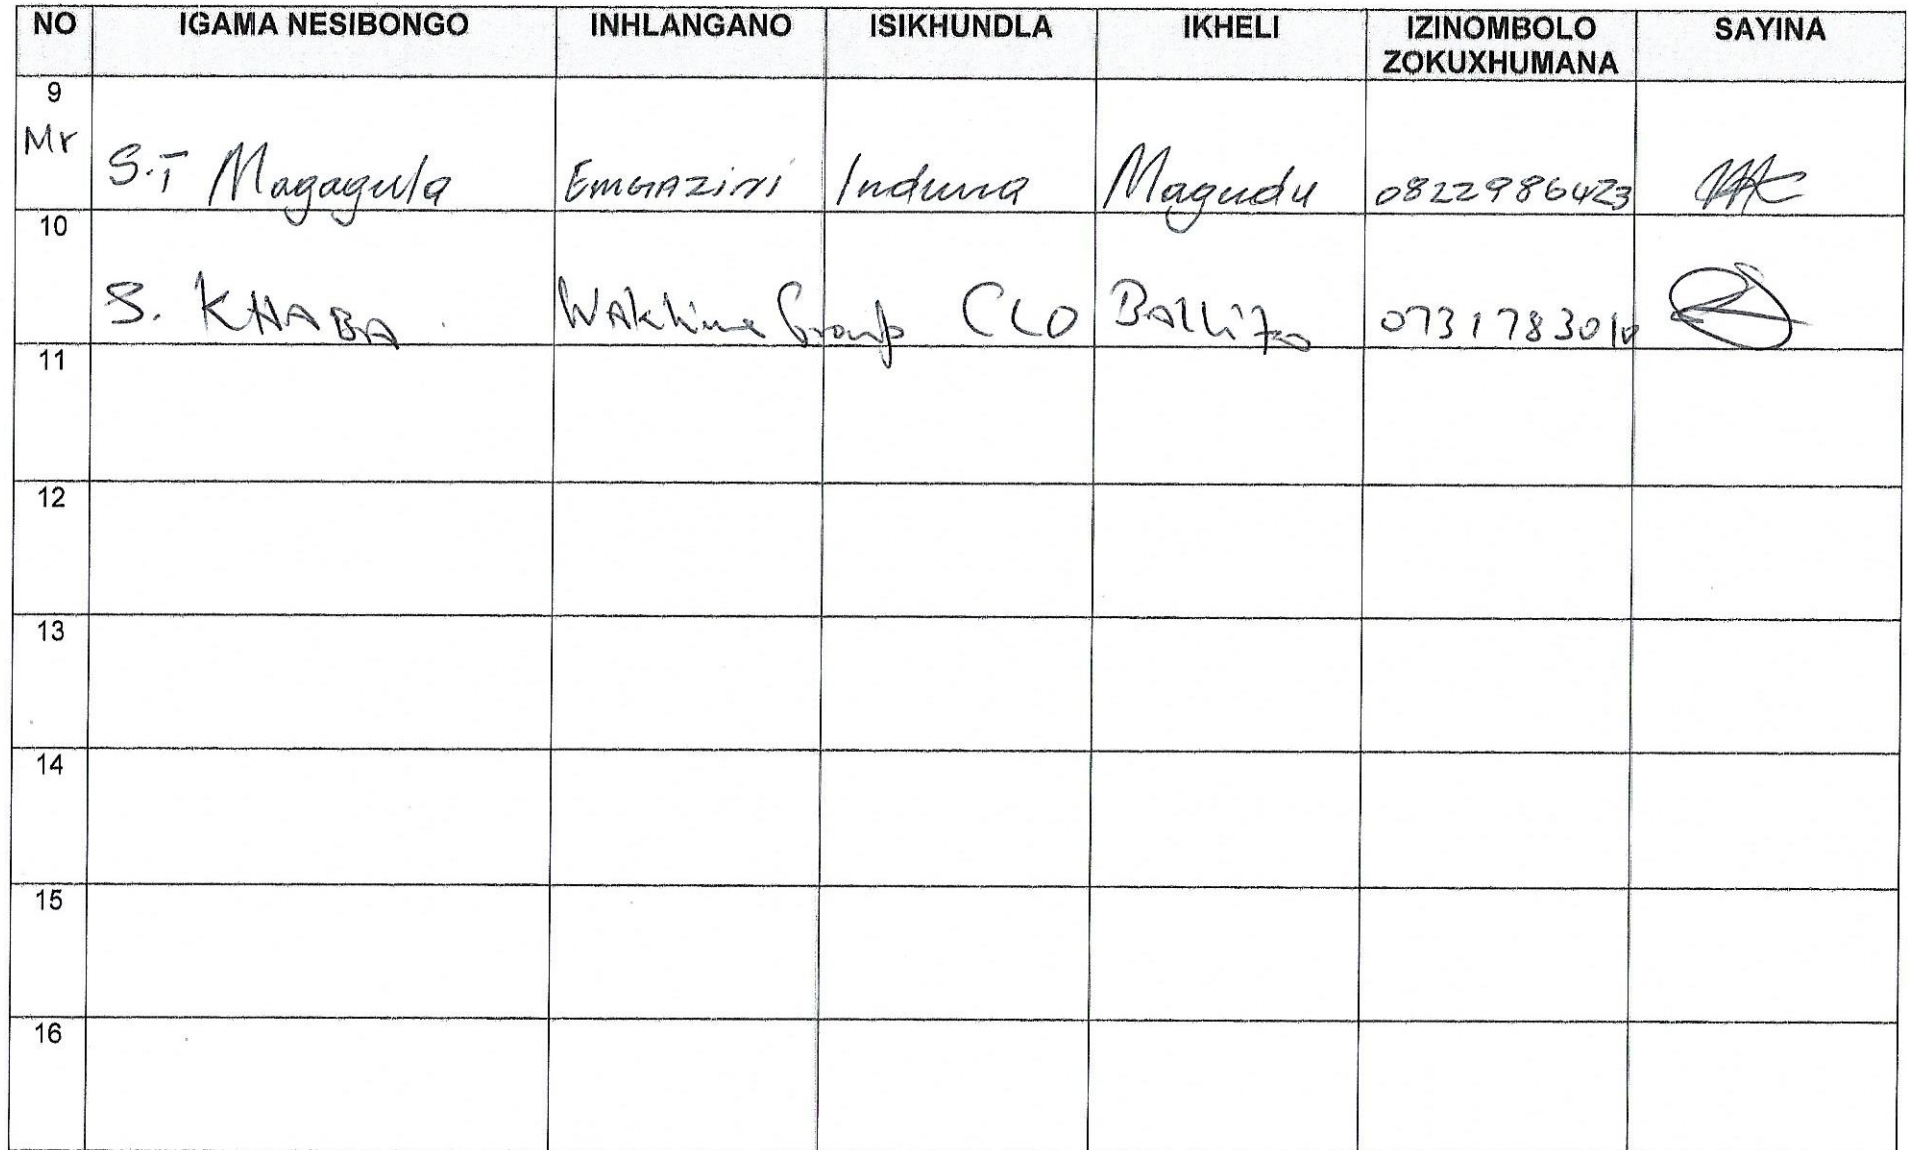 NO IGAMA NESIBONGO INHLANGANO ISIKHUNDLA IKHELI IZINOMBOLO ZOKUXHUMANA SAYINA
9
Mr S.T Magagula EMGAZINI Induna Magudu 0822986423
10
S. KHABA Group CLO BAllito 0731783010
11
12
13
14
15
16